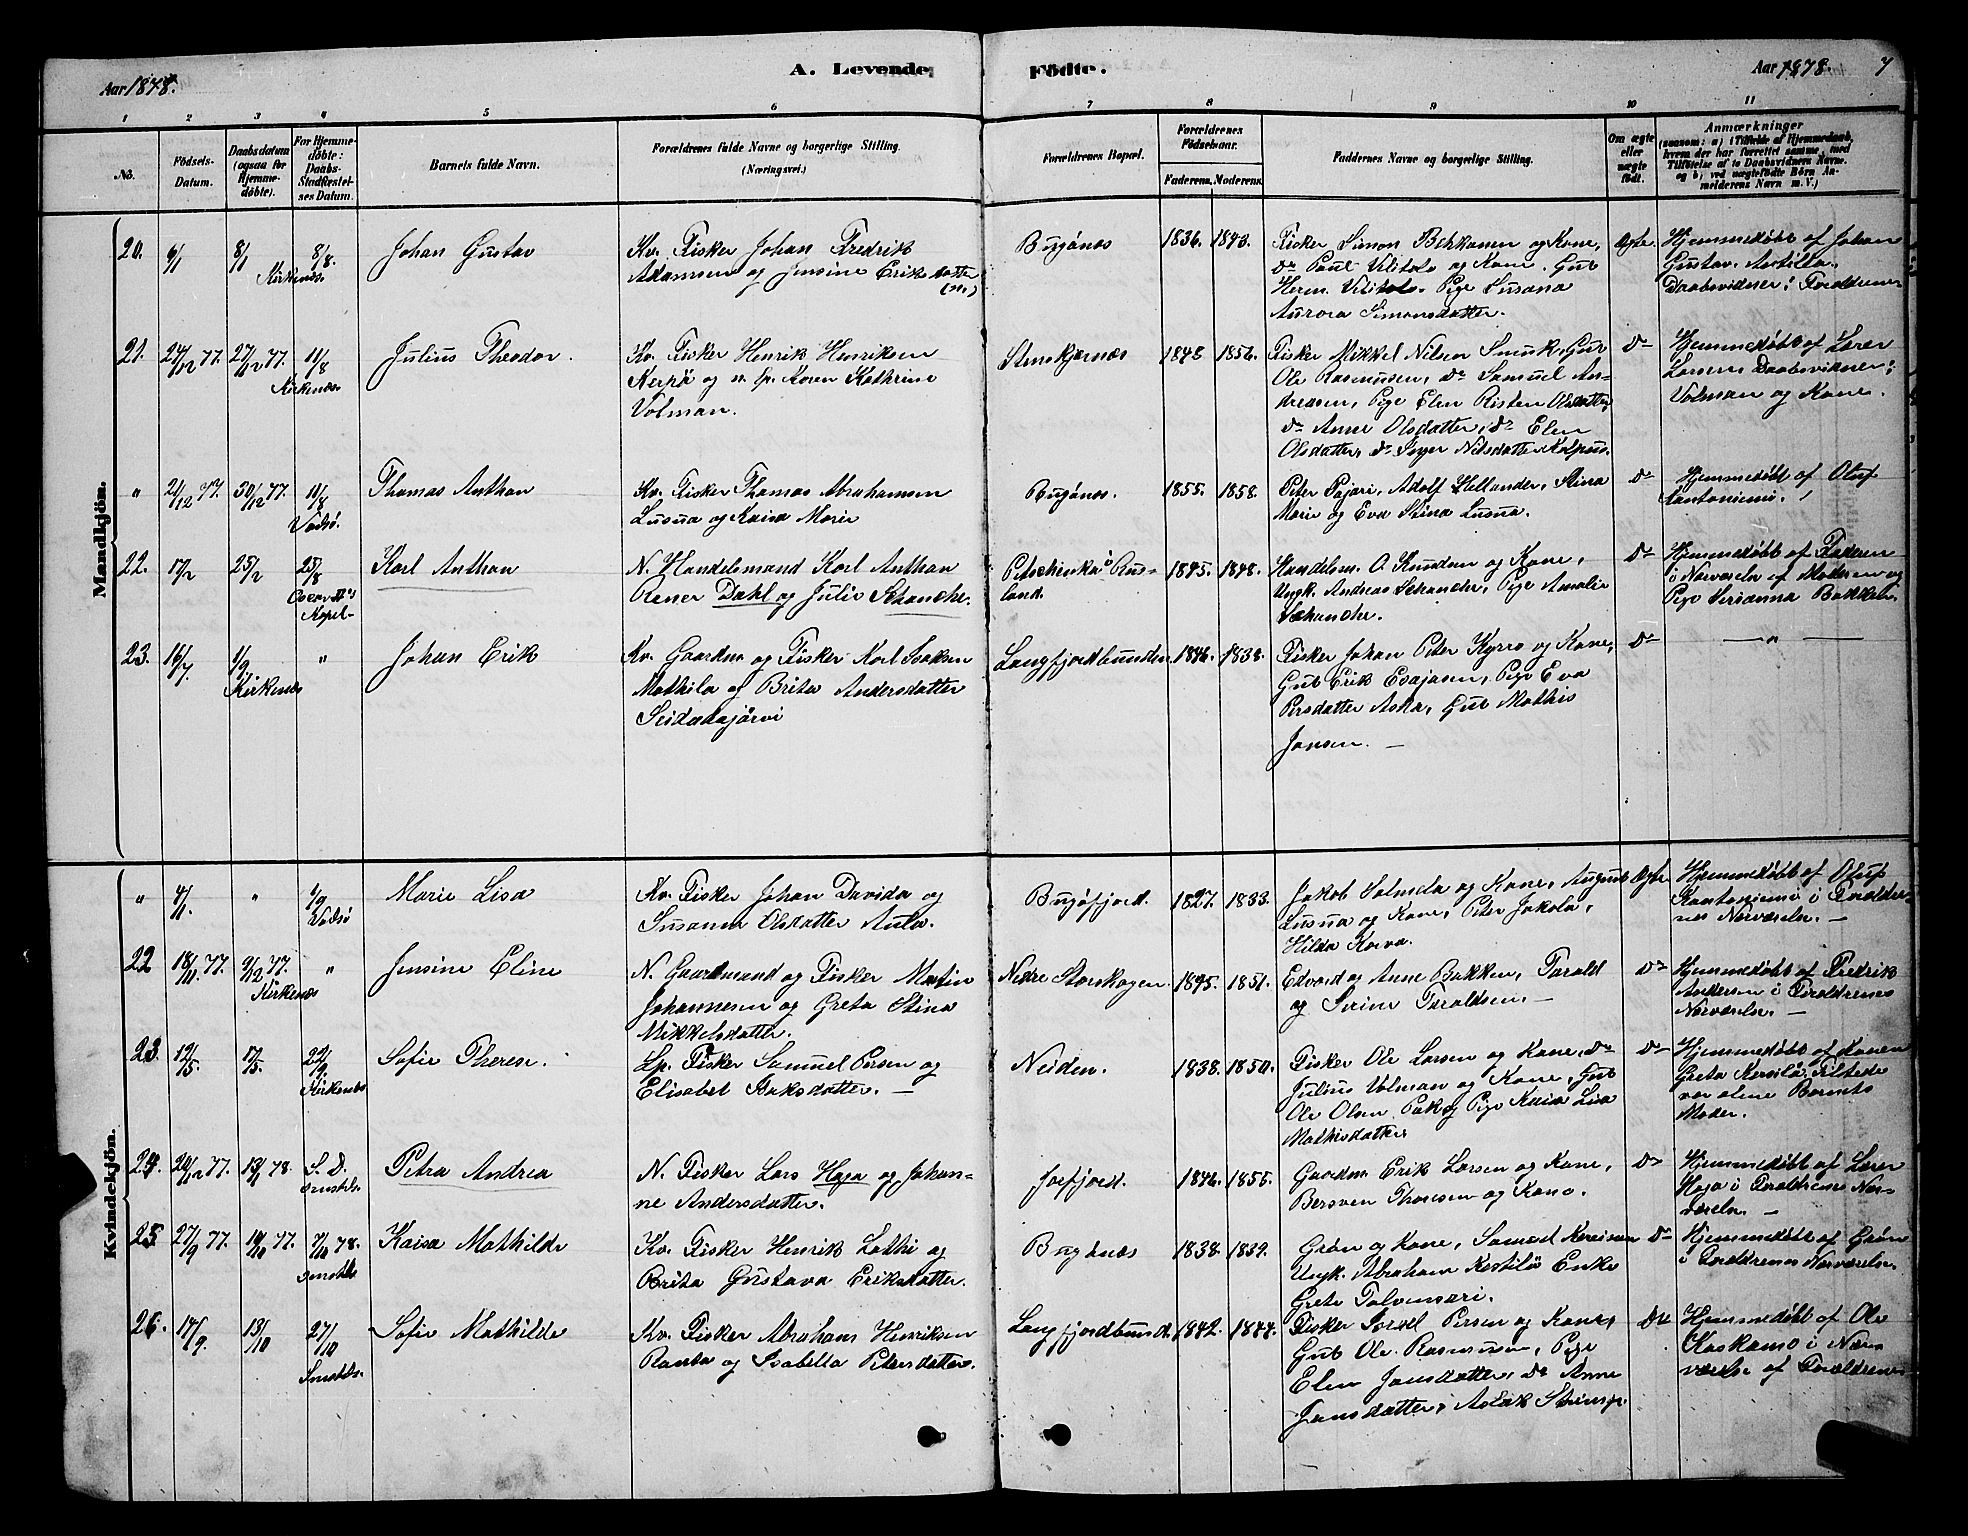 Aar 1878.
A. Levende
Födte.
Aar 1878.
7
1 2 3 4 5 6 7 8 9 10 11
No.
Födsels-
Datum.
Daabsdatum
(ogsaa for
Hjemme-
döbte).
For Hjemme-
döbte:
Daabs-
Stadfæstel-
ses Datum.
Barnets fulde Navn.
Forældrenes fulde Navne og borgerlige Stilling.
(Næringsvei.)
Forældrenes Bopæl.
Forældrenes
Födselsaar.
Faderens. Moderens.
Faddernes Navne og borgerlige Stilling.
Om ægte
eller
uægte
født.
Anmærkninger
(saasom: a) i Tilfælde af Hjemmedaab,
hvem der har forrettet samme, med
Tilföielse af to Daabsvidners Navne,
og b) ved uægtefödte Börn An-
melderens Navn m. V.)
Mandkjön.
20. 6/1 8/1 Kirkenæs 8/8.
Johan Gustav
Kv. Fisker Johan Fredrik
Adamsen og Jensine Eriksdatter
(n.)
Bugönes 1836. 1843.
Fisker Simon Bekkanen og Kone,
do Paul Vilitalo og Kone, Gut
Herm. Vilitalo. Pige Susana
Aurora Simonsdatter.
Ægte.
Hjemmedöbt af Johan
Gustav Antilla.
Daabsvidner: Foraldrene
21. 24/12 77. 27/12 77. 11/8 Kirkenæs
Julius Theodor.
Kv. Fisker Henrik Henriksen
Kerpö og n. Lp. Karen Kathrine
Volman.
Stenskjærnæs 1848 1856.
Fisker Mikkel Nilsen Smuk, Gut
Ole Rasmussen, do Samuel An-
dreasen, Pige Elen Risten Olsdatter
do Anne Olsdatter, do Elen
Olsdatter, do Inger Nilsdatter Kalpus.
do
Hjemmedöbt af Lærer
Larsen. Daabsvidner:
Volman og Kone.
" 21/12 77. 30/12 77. 11/8 Vadsö.
Thomas Anthan
Kv. Fisker Thomas Abrahamsen
Lusua og Kaisa Marie
Bugönes. 1855. 1858.
Peter Pajari, Adolf Hellander, Stina
Marie og Eva Stina Lusua.
do
Hjemmedöbt af Oluf
Kantoniemi.
22. 17/2 25/2 25/8 Kapel
Karl Anthon
N. Handelsmand Karl Anthon
Rener Dahl og Julie Schanche.
Petschenka i Rus-
land. 1845. 1848.
Handelsm. O. Knudsen og Kone,
Ungk. Andreas Schanche, Pige Amalie
Schanche.
do
Hjemmedöbt af Faderen
i Nærværelse af Moderen og
Pige Serianna Bakken
23. 16/7 1/9 Kirkenæs "
Johan Erik
Kv. Gaardm og Fisker Karl Isaksen
Mathila og Brita Andersdatter
Seidadajärvi
Langfjordbunden 1846. 1838.
Fisker Johan Peter Kyrrö og Kone,
Gut Erik Esajasen, Pige Eva
Persdatter Aska, Gut Mathis
Jansen. —
do
— " —
Kvindekjön.
" 4/1. " 1/9 Vadsö
Marie Lisa
Kv. Fisker Johan Davida og
Susanna Olsdatter Aula.
Bugöfjord. 1827. 1833.
Jakob Salmela og Kone, August
Lusua og Kone, Peter Jakola,
Hilda Korva.
Ægte
Hjemmedöbt af Oluf
Kantoniemi i Foraldre-
nes Nærværelse. —
22 18/11 77. 9/12 77. Kirkenæs "
Jensine Eline
N. Gaardmand og Fisker Martin
Johannesen og Greta Stina
Mikkelsdatter.
Nedre Storskogen. 1845. 1851.
Edvard og Anne Bakken, Tarald
og Serine Taraldsen. —
do
Hjemmedöbt af Fredrik
Andersen i Foraldrenes
Nærværelse. —
23. 12/5. 17/5. 22/9. Kirkenæs
Sofie Therese.
Lp. Fisker Samuel Persen og
Elisabet Isaksdatter. —
Neiden. 1838. 1850.
Fisker Ole Larsen og Kone, do
Julius Volman og Kone, Gut
Ole Olsen Pak og Pige Kaisa Lisa
Mathisdatter
do
Hjemmedöbt af Konen
Greta Kersilö, Tilstede
var alene Barnets
Moder.
24. 20/12 77. 13/1 78. S. D.
Petra Andrea
N. Fisker Lars Haga og Johan-
ne Andersdatter.
Jarfjord. 1846. 1855.
Gaardm. Erik Larsen og Kone,
Bersven Thomesen og Kone.
do
Hjemmedöbt af Lærer
Haga i Foraldrenes Nær-
værelse. —
25. 27/9 77. 14/10 77. 7/10 78.
Kaisa Mathilde
Kv. Fisker Henrik Lathi og
Brita Gustava Eriksdatter.
Bugönæs 1838. 1839.
Grön og Kone,
Ungk. Abraham Kestilö Enke
Grete Talvensari.
do
Hjemmedöbt af Grön
i Foraldrenes Nærværelse.
26. 17/9. 13/10 27/10
Sofie Mathilde
Kv. Fisker Abraham Henriksen
Ranta og Isabella Petersdatter.
Langfjordbund. 1842. 1844.
Fisker Persen og Kone,
Gut Ole Rasmussen, Pige
Elen Jansdatter, do Anne
Jansdatter, Aslak
do
Hjemmedöbt af Ole
Kaskamo i Nær-
værelse af Foraldrene